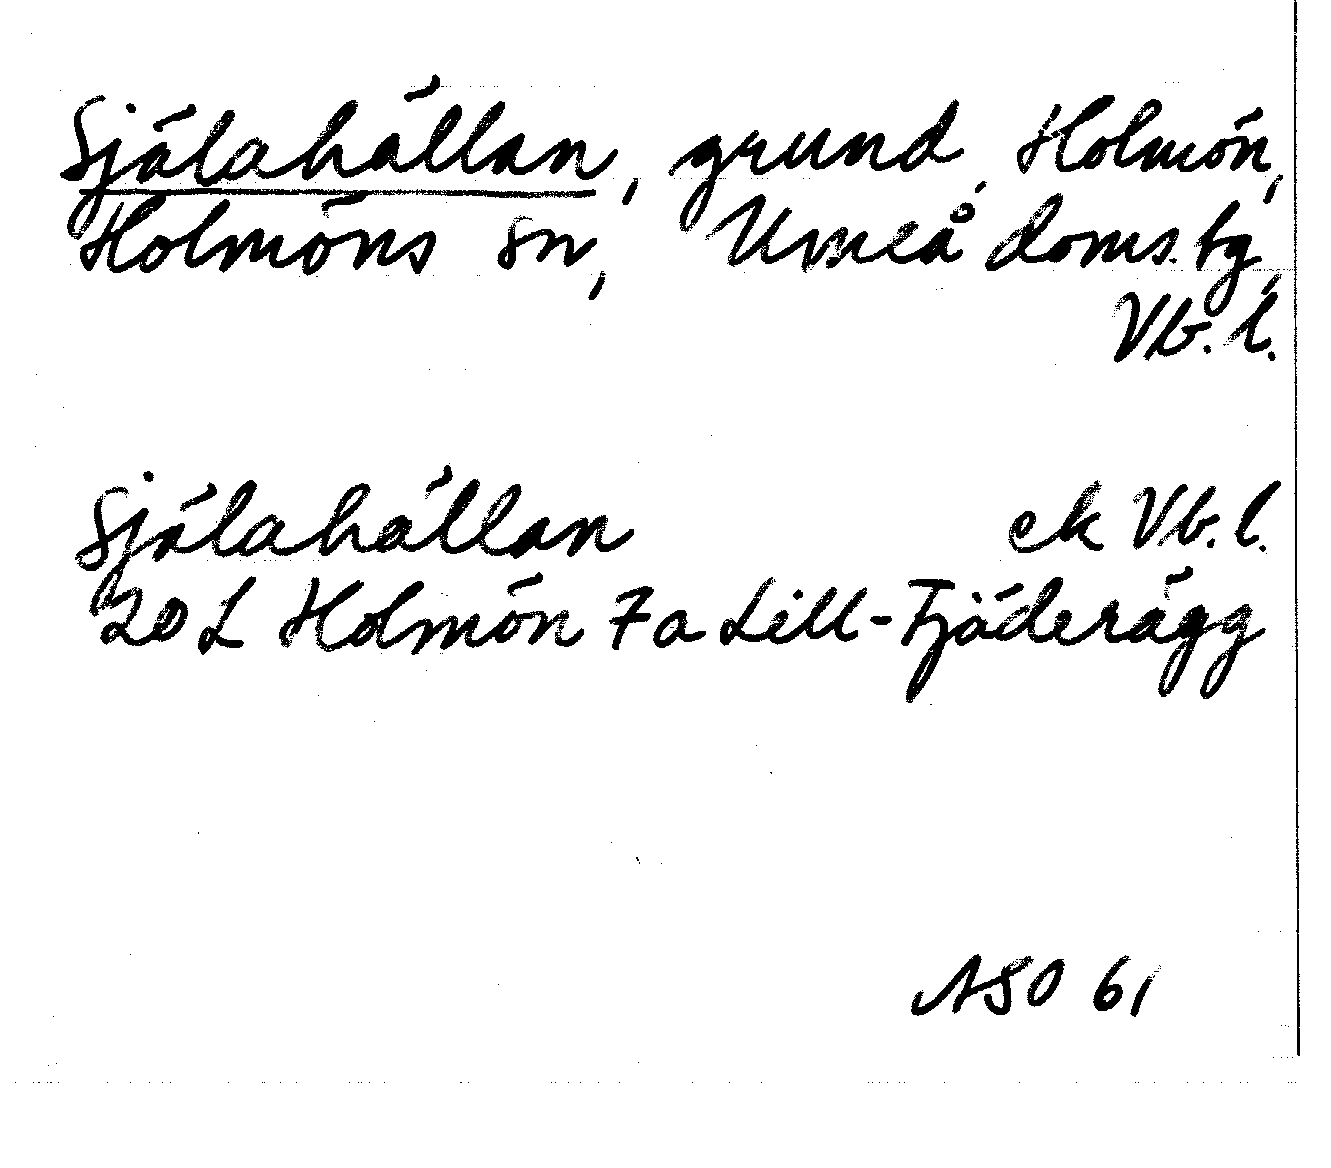 Själahällan, grund, Holmön,
Holmöns sn, Umeå doms. tg,
Vb. l.
Själahällan ek Vb. l.
20 L Holmön 7a Lill-Fjäderägg
ASO 61